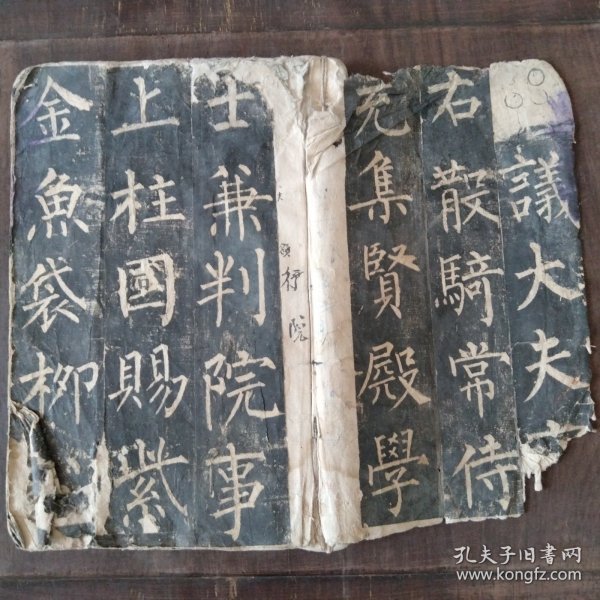 議大夫
右散騎常侍
充集賢殿學
士兼判院事
上柱國賜紫
金魚袋柳
院
孔夫子旧書网
www.kongfz.com